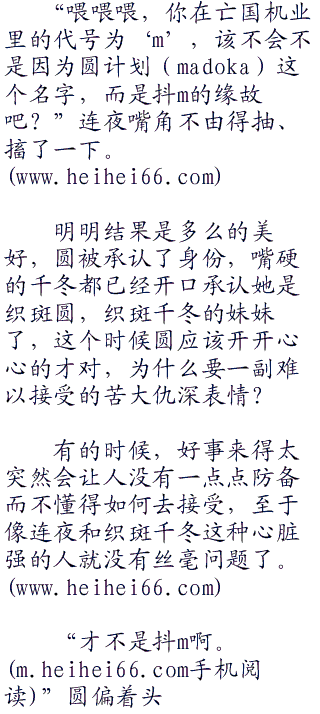 “喂喂喂，你在亡国机业
里的代号为‘m’，该不会不
是因为圆计划（madoka）这
个名字，而是抖m的缘故
吧？”连夜嘴角不由得抽、
搐了一下。
(www.heihei66.com)
明明结果是多么的美
好，圆被承认了身份，嘴硬
的千冬都已经开口承认她是
织斑圆，织斑千冬的妹妹
了，这个时候圆应该开开心
心的才对，为什么要一副难
以接受的苦大仇深表情？
有的时候，好事来得太
突然会让人没有一点点防备
而不懂得如何去接受，至于
像连夜和织斑千冬这种心脏
强的人就没有丝毫问题了。
(www.heihei66.com)
“才不是抖m啊。
(m.heihei66.com手机阅
读)”圆偏着头